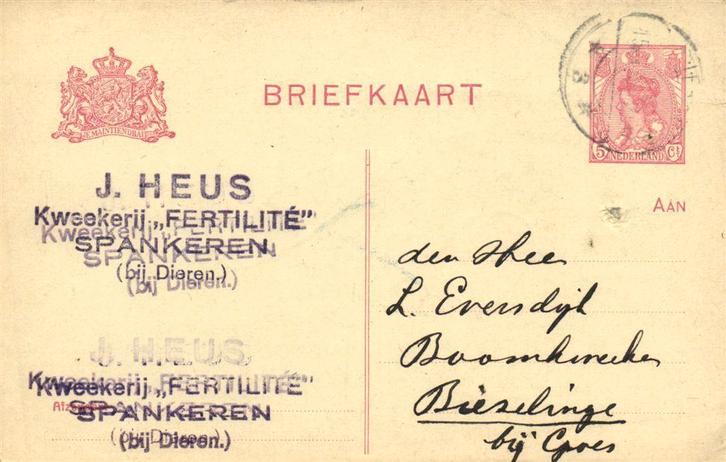 JE MAINTIENDRAI
BRIEFKAART
5 NEDERLAND Ct
AAN
J. HEUS
Kweekerij „FERTILITÉ”
Kweekerij „FERTILITÉ”
SPANKEREN
SPANKEREN
(bij Dieren.)
(bij Dieren.)
J. HEUS
Kweekerij „FERTILITÉ”
Kweekerij „FERTILITÉ”
SPANKEREN
(bij Dieren.)
(bij Dieren.)
den Heer
L. Eversdijk
Boomkweeker
Biezelinge
bij Goes